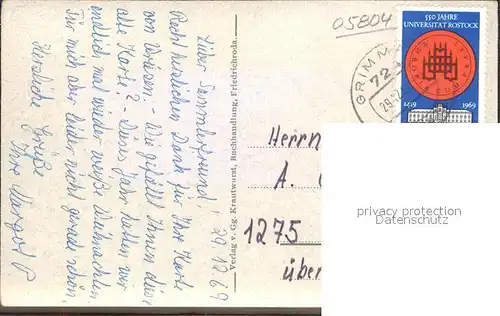 29.12.69
Lieber Sammlerfreund!
Recht herzlichen Dank für Ihre Karte
von Wiesen. Wie gefällt Ihnen diese
alte Karte? - Dieses Jahr hatten wir
endlich mal wieder weiße Weihnachten.
Für mich aber leider nicht gerade schön.
Herzliche Grüße
Ihre Margot P
Verlag v. Gg. Krautwurst, Buchhandlung, Friedrichroda.
05804
GRIMMA
72
29.12
550 JAHRE
UNIVERSITÄT ROSTOCK
1419 1969
Herrn
A.
1275
über
privacy protection
Datenschutz